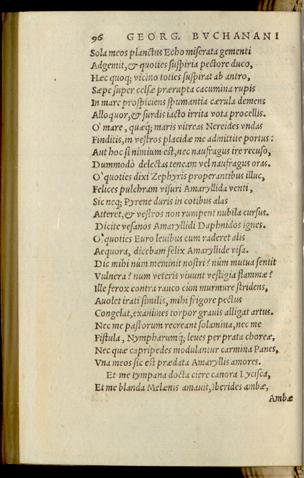 96 GEORG. BVCHANANI
Sola meos planctus Echo miserata gementi
Adgemit, & quoties suspiria pectore duco,
Hæc quoq; vicino toties suspirat ab antro,
Sæpe super celsæ prærupta cacumina rupis
In mare prospiciens spumantia cærula demens
Alloquor, & surdis iacto irrita vota procellis.
O' mare, quæq; maris vitreas Nereides vndas
Finditis, in vestros placidæ me admittite portus:
Aut hoc si nimium est, nec naufragus ire recuso,
Dummodò delectas teneam vel naufragus oras.
O' quoties dixi Zephyris properantibus illuc,
Felices pulchram visuri Amaryllida venti,
Sic neq; Pyrene duris in cotibus alas
Atteret, & vestros non rumpent nubila cursus.
Dicite vesanos Amaryllidi Daphnidos ignes.
O' quoties Euro leuibus cum raderet alis
Aequora, dicebam felix Amaryllide visa.
Dic mihi nùm meminit nostri? nùm mutua sentit
Vulnera? num veteris viuunt vestigia flammæ?
Ille ferox contra rauco cùm murmure stridens,
Auolet irati similis, mihi frigore pectus
Congelat, exanimes torpor grauis alligat artus.
Nec me pastorum recreant solamina, nec me
Fistula, Nympharumq́; leues per prata choreæ,
Nec quæ capripedes modulantur carmina Panes,
Vna meos sic est prædata Amaryllis amores.
Et me tympana docta ciere canora Lycisca,
Et me blanda Melænis amauit, iberides ambæ,
Ambæ